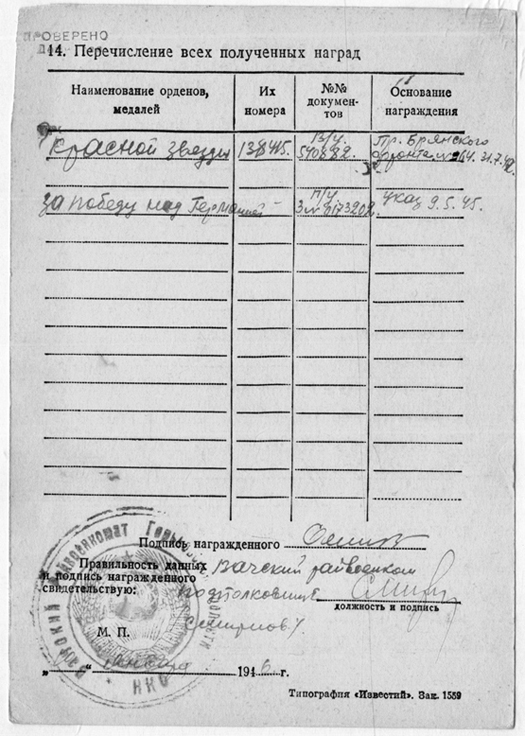 ПРОВЕРЕНО
14. Перечисление всех полученных наград
Наименование орденов, медалей
Их номера
№№ документов
Основание награждения
Красной звезды
138415.
з/у.
570882.
Пр. Брянского
фронта № 164. 31.7.42.
За победу над Германией
п/у
З № 0173202.
Указ 9.5.45.
Подпись награжденного
Правильность данных
и подпись награжденного
свидетельствую:
Вачский райвоенком
подполковник
Смирнов/
должность и подпись
М. П.
января 1946 г.
Типография «Известий». Зак. 1559